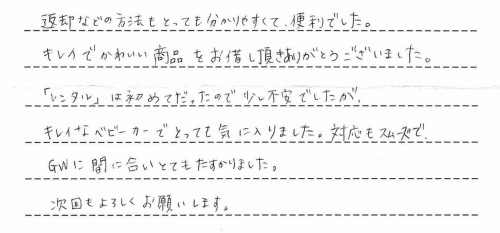 返却などの方法もとっても分かりやすくて、便利でした。
キレイでかわいい商品をお借し頂きありがとうございました。
「レンタル」は初めてだったので少し不安でしたが、
キレイなベビーカーでとっても気に入りました。対応もスムーズで、
GWに間に合いとてもたすかりました。
次回もよろしくお願いします。